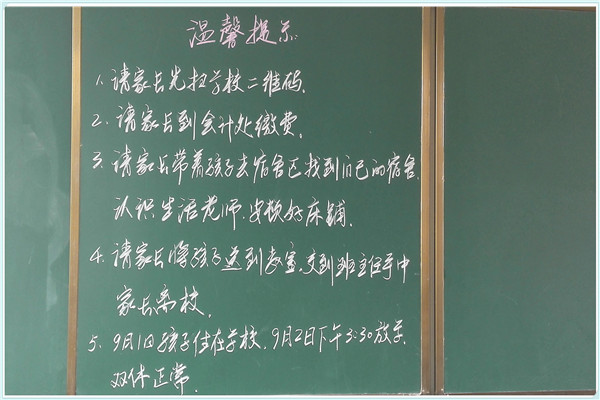 温馨提示
1.请家长先扫学校二维码.
2.请家长到会计处缴费.
3.请家长带着孩子去宿舍区找到自己的宿舍
认识生活老师.安顿好床铺.
4.请家长将孩子送到教室.交到班主任手中
家长离校.
5、9月1日孩子住在学校.9月2日下午3:30放学.
双休正常.